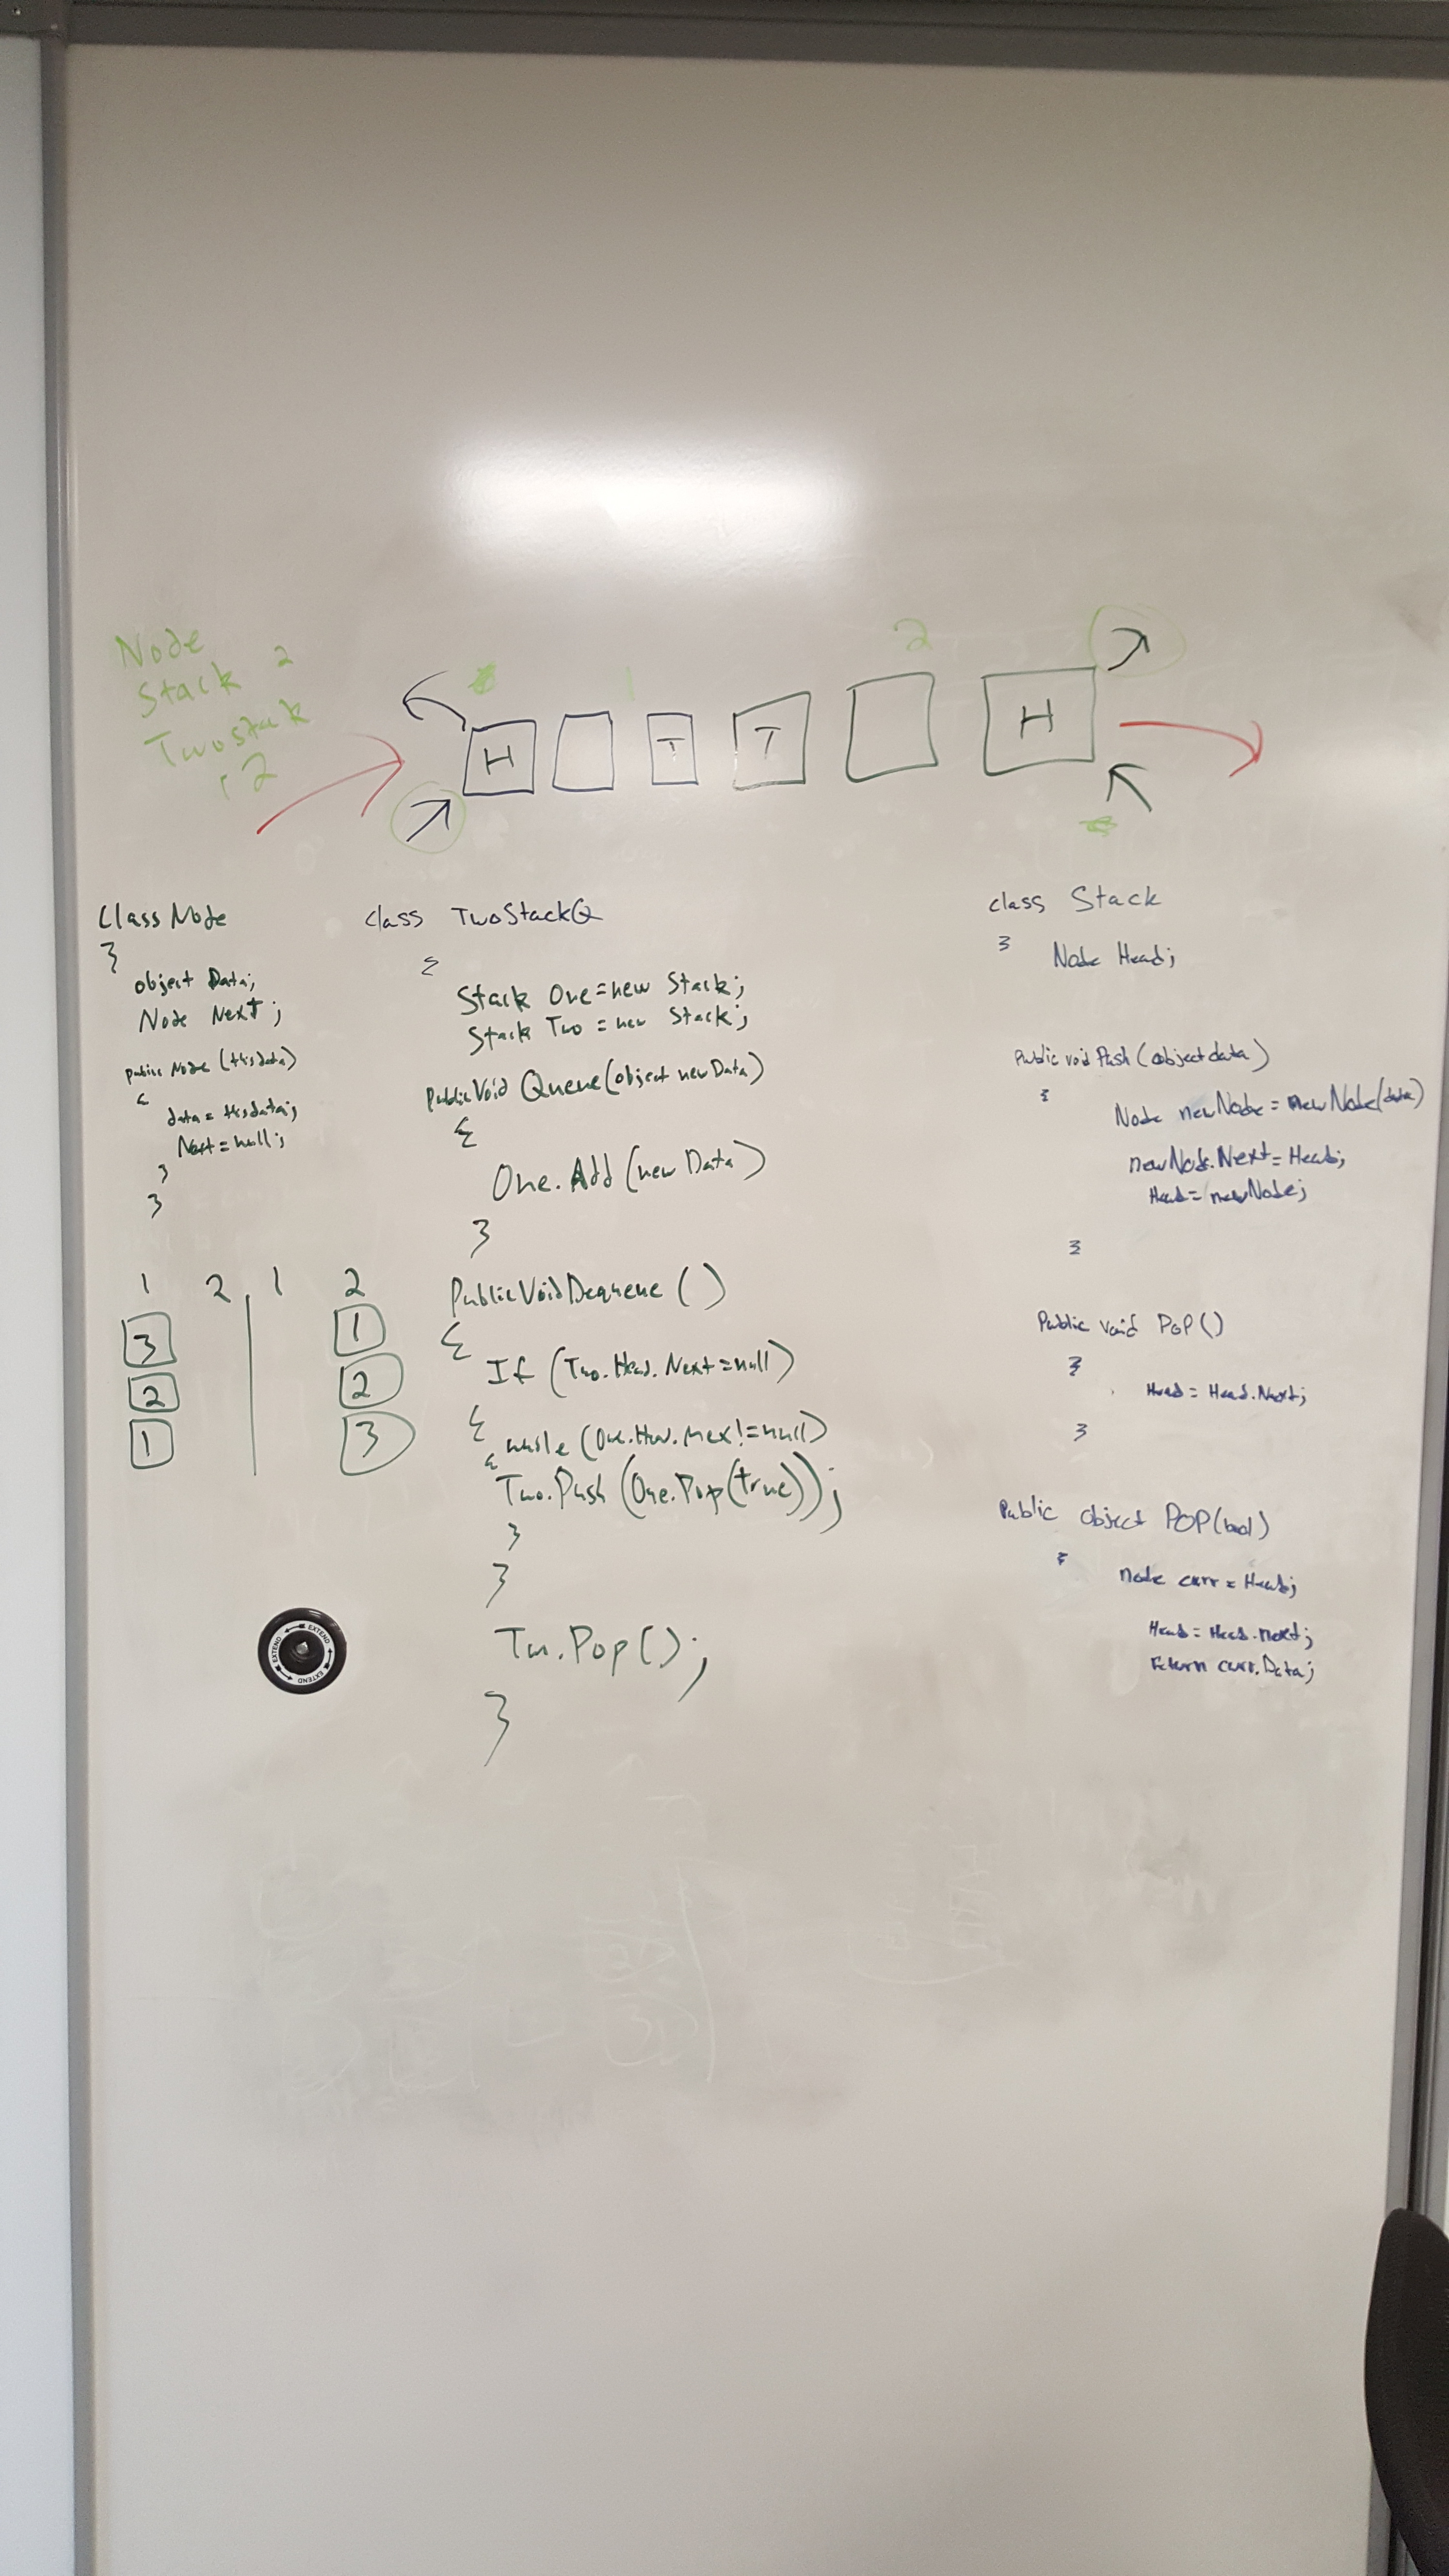 Node
Stack 2
Twostack
2
1
2
H
T
T
H
Class Node
}
object Data;
Node Next;
public Node (thisdata)
{
data = thisdata;
Next = null;
}
}
1 2 1 2
3
2
1
1
2
3
class TwoStackQ
{
Stack One = new Stack;
Stack Two = new Stack;
Public Void Queue (object newData)
{
One.Add (new Data)
}
Public Void Dequeue ()
{
If (Two.Head.Next = null)
{
while (One. != null)
{
Two.Push (One.Pop(true));
}
}
.Pop();
}
class Stack
{
Node Head;
Public void Push (object data)
{
Node newNode = new Node(data)
newNode.Next = Head;
Head = newNode;
}
Public void POP()
{
Head = Head.Next;
}
Public object POP(bool)
{
Node curr = Head;
Head = Head.next;
return curr.Data;
EXTEND
EXTEND
EXTEND